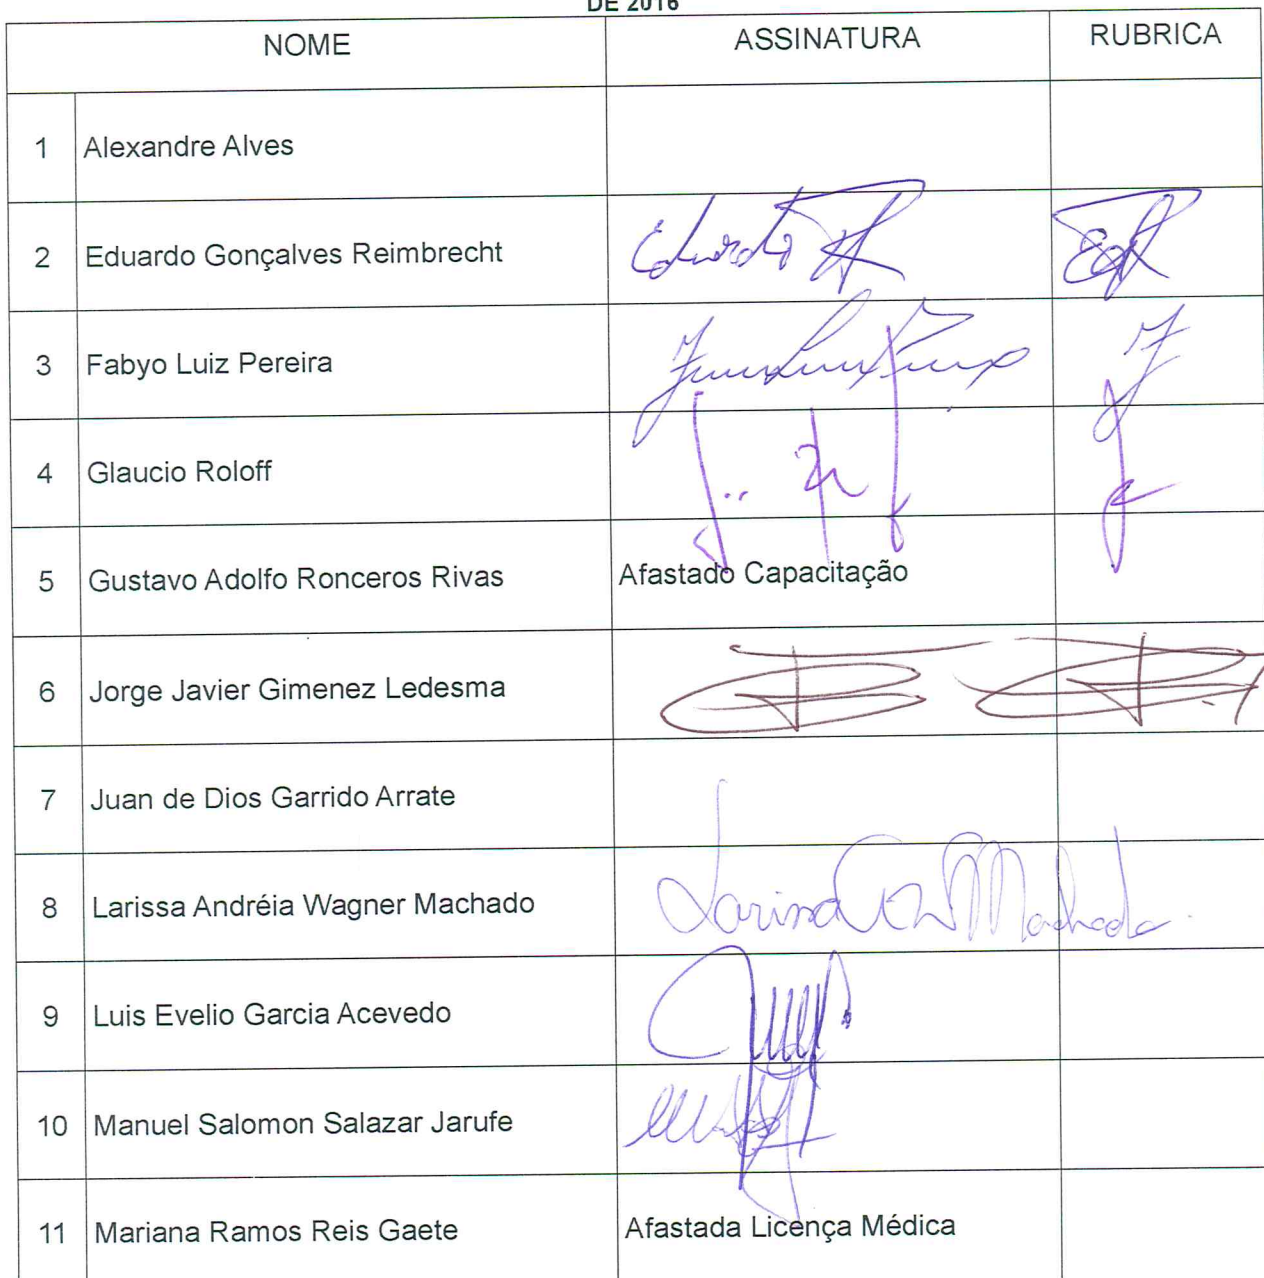 DE 2016
NOME ASSINATURA RUBRICA
1 Alexandre Alves
2 Eduardo Gonçalves Reimbrecht Eduardo
3 Fabyo Luiz Pereira
4 Glaucio Roloff
5 Gustavo Adolfo Ronceros Rivas Afastado Capacitação
6 Jorge Javier Gimenez Ledesma
7 Juan de Dios Garrido Arrate
8 Larissa Andréia Wagner Machado Larissa A W Machado
9 Luis Evelio Garcia Acevedo
10 Manuel Salomon Salazar Jarufe
11 Mariana Ramos Reis Gaete Afastada Licença Médica